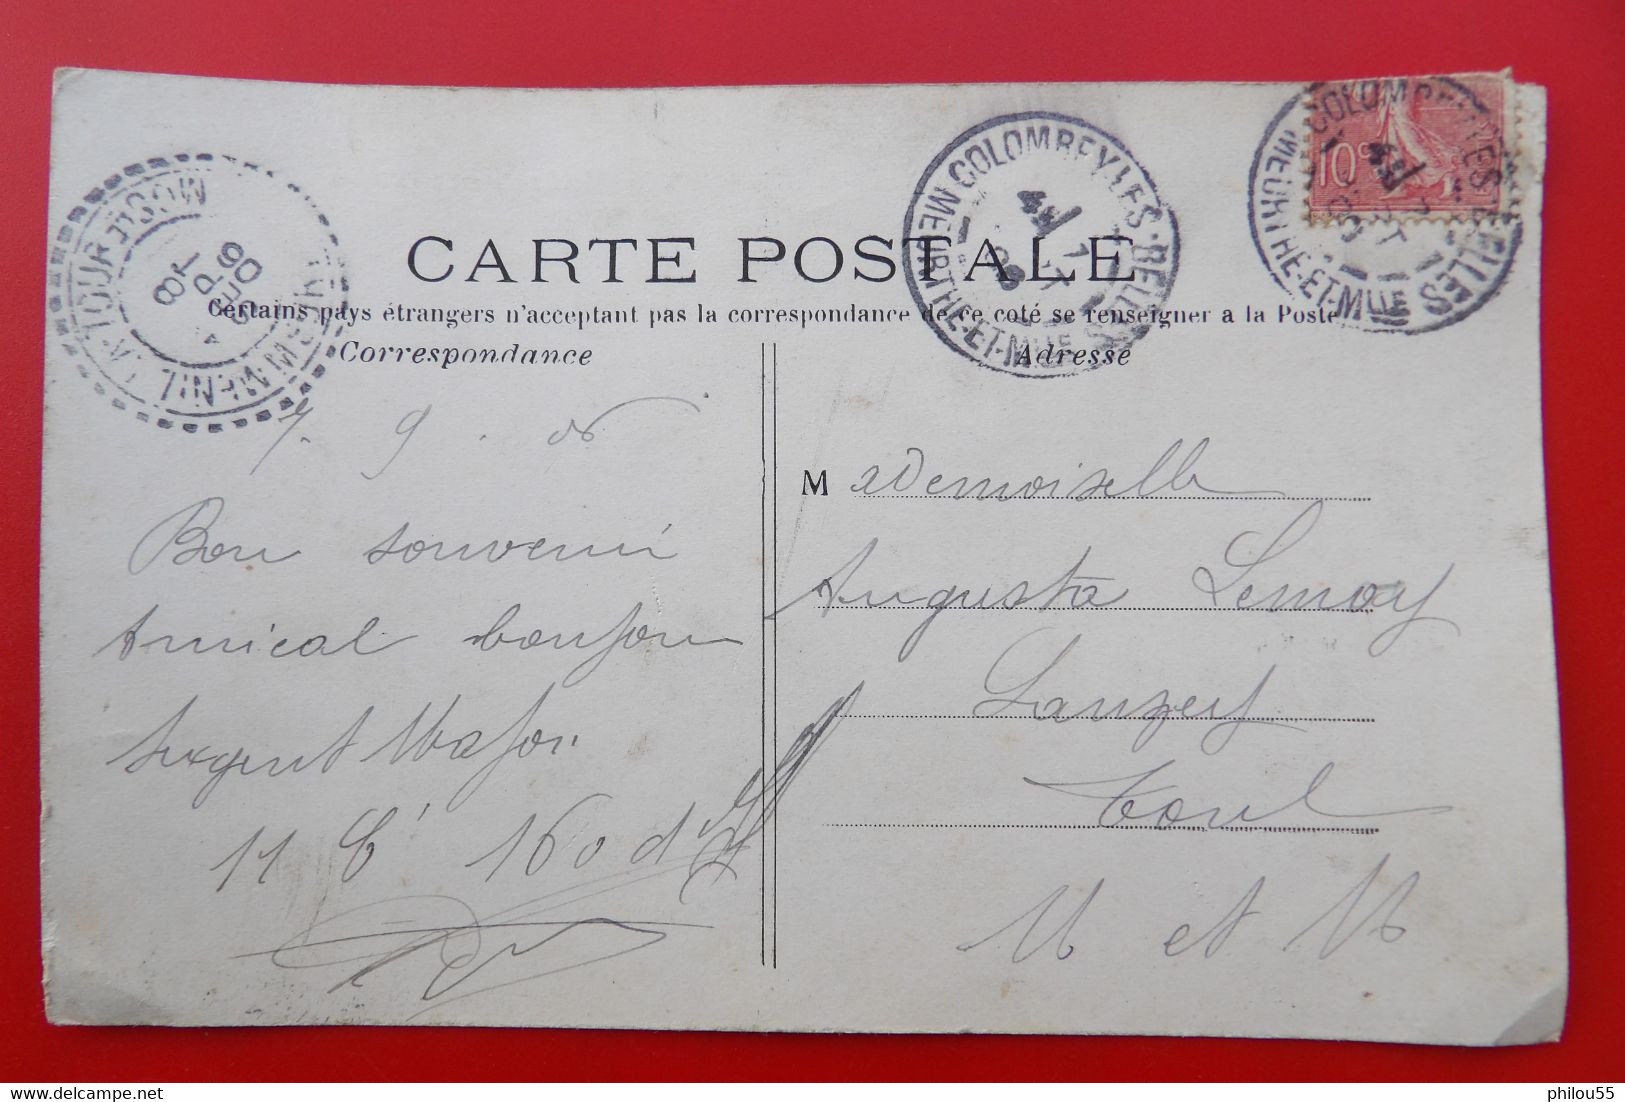 CARTE POSTALE
Certains pays étrangers n'acceptant pas la correspondance de ce coté se renseigner a la Poste
Correspondance
Adresse
COLOMBEY-LES-BELLES
MEURTHE-ET-MLLE
COLOMBEY-LES-BELLES
MEURTHE-ET-MLLE
10c
MENIL LA TOUR
8
06
7. 9. 06
Bon souvenir
Amical bonjour
Sergent Major
11 Cie 160 d'If
Mademoiselle
Augusta Lemoy
Lauzey
Toul
M et M
philou55